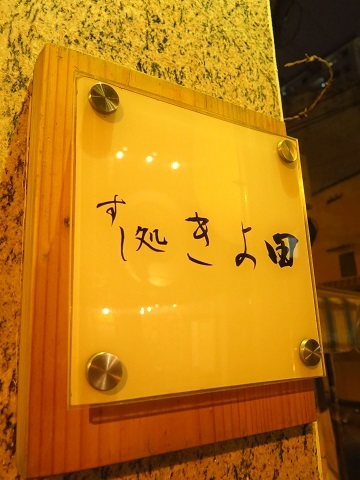 すし処 きよ田